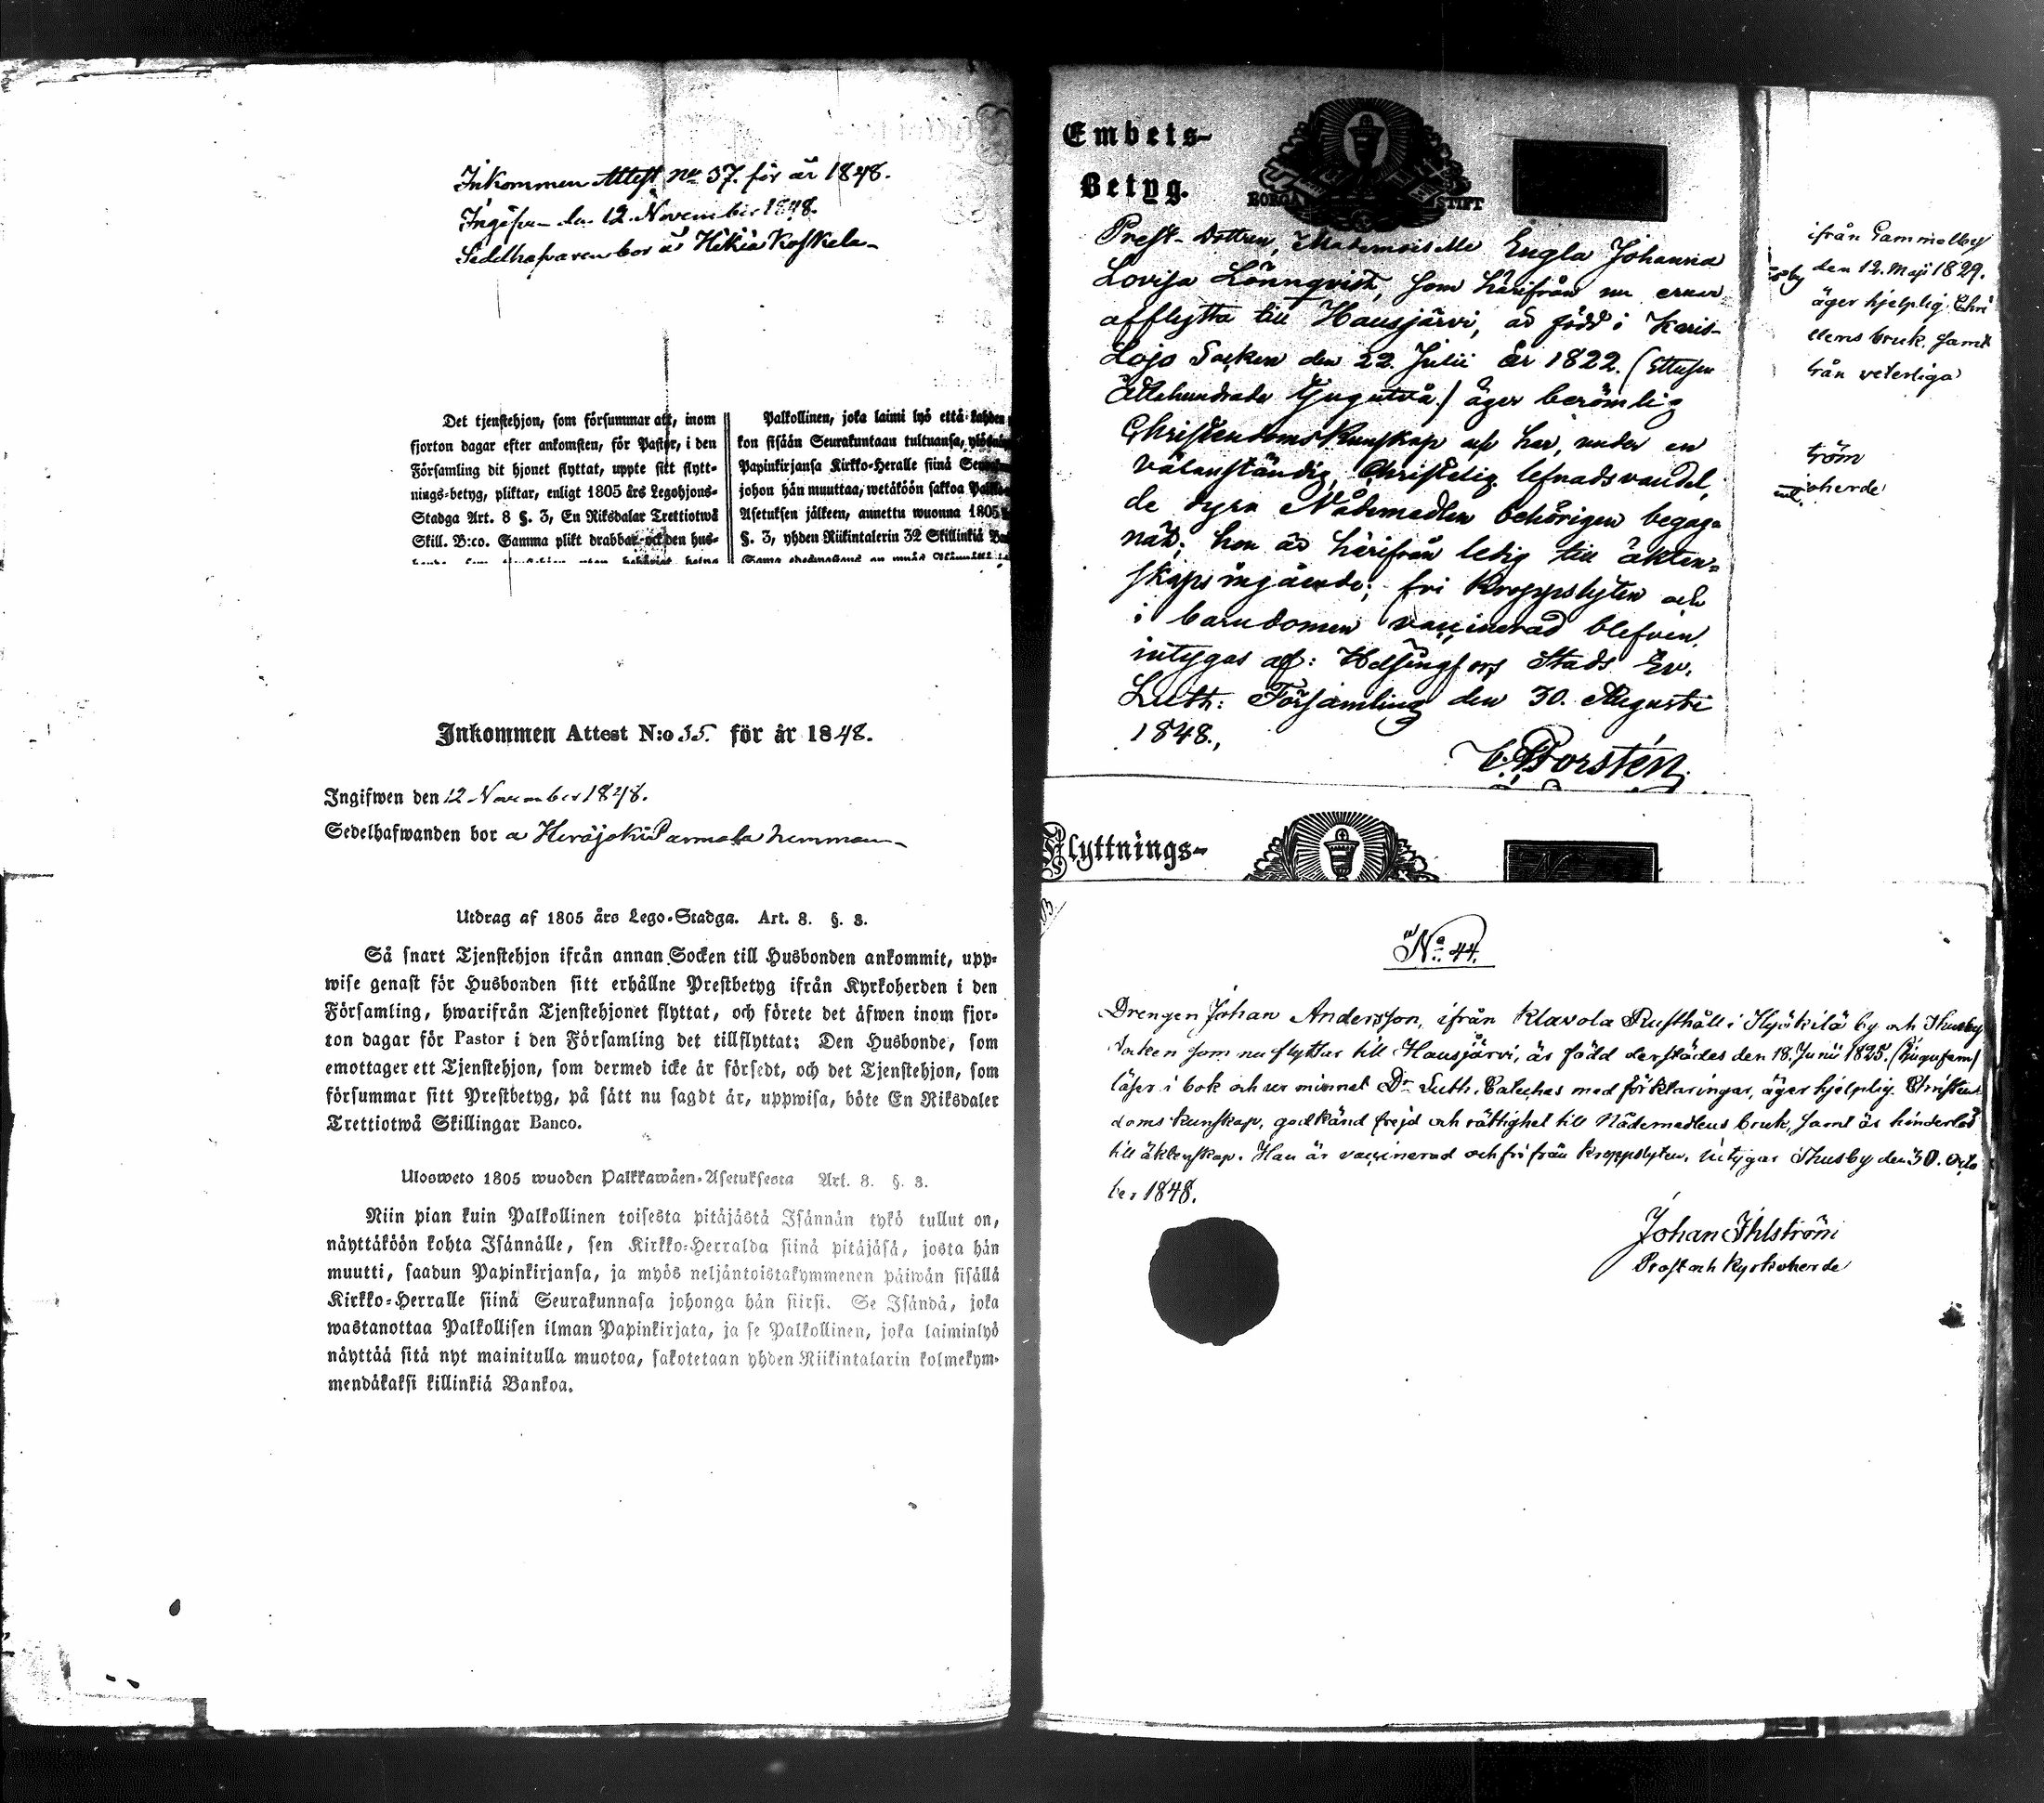 Inkommen Attest No 37. för år 1848.
Ingifven den 12 November 1848.
Sedelhafvaren bor å Hikiä Koskela
Det tjenstehjon, som försummar att, inom
fjorton dagar efter ankomsten, för Pastor, i den
Församling dit hjonet flyttat, uppte sitt flytt-
nings-betyg, pliktar, enligt 1805 års Legohjons-
Stadga Art. 8 §. 3, En Riksdalar Trettiotwå
Skill. B:co. Samma plikt drabbar ock den hus-
Palkollinen, joka laimi lyö että kahden
kon sisään Seurakuntaan tultuansa,
Papinkirjansa Kirkko-Heralle siinä
johon hän muuttaa, wetäköön sakkoa
Asetuksen jälkeen, annettu wuonna 1805
§. 3, yhden Riikintalerin 32 Skillinkiä
Inkommen Attest N:o 35. för år 1848.
Ingifwen den 12 November 1848.
Sedelhafwanden bor å Heräjoki Parmala hemman
Utdrag af 1805 års Lego-Stadga. Art. 8. §. 3.
Så snart Tjenstehjon ifrån annan Socken till Husbonden ankommit, upp-
wise genast för Husbonden sitt erhållne Prestbetyg ifrån Kyrkoherden i den
Församling, hwarifrån Tjenstehjonet flyttat, och förete det äfwen inom fjor-
ton dagar för Pastor i den Församling det tillflyttat: Den Husbonde, som
emottager ett Tjenstehjon, som dermed icke är försedt, och det Tjenstehjon, som
försummar sitt Prestbetyg, på sätt nu sagdt är, uppwisa, böte En Riksdaler
Trettiotwå Skillingar Banco.
Ulosweto 1805 wuoden Palkkawäen-Asetuksesta Art. 8. §. 3.
Niin pian kuin Palkollinen toisesta pitäjästä Isännän tykö tullut on,
näyttäköön kohta Isännälle, sen Kirkko-Herralda siinä pitäjäsä, josta hän
muutti, saadun Papinkirjansa, ja myös neljäntoistakymmenen päiwän sisällä
Kirkko-Herralle siinä Seurakunnasa johonga hän siirsi. Se Isändä, joka
wastanottaa Palkollisen ilman Papinkirjata, ja se Palkollinen, joka laiminlyö
näyttää sitä nyt mainitulla muotoa, sakotetaan yhden Riikintalarin kolmekym-
mendäkaksi killinkiä Bankoa.
Embets-
Betyg.
BORGÅ STIFT
Prest-Dottren, Mademoiselle Engla Johanna
Lovisa Lönnqvist, som härifrån nu ernar
afflytta till Hausjärvi, är född i Karis-
Lojo Socken den 22. Julii år 1822. (Ettusen
Åttahundrade Tjugutvå.) äger berömlig
Christendomskunskap och har, under en
välanständig, Christelig lefnadsvandel,
de dyra Nådemedlen behörigen begag-
nat; hon är härifrån ledig till äkten-
skaps ingående; fri kroppslyten och
i barndomen vaccinerad blefven,
intygas af: Helsingfors Stads Ev.
Luth: Församling den 30. Augusti
1848.,
C. Borstén.
Flyttnings-
ifrån Gammelby
den 12. Maji 1829.
äger hjelplig Chri
llens bruk, samt
från veterliga
tröm
oherde
No 44.
Drengen Johan Andersson, ifrån Klavola Rusthåll i Hyökilä by och Thusby
Socken som nu flyttar till Hausjärvi, är född derstädes den 18. Junii 1825. (Tjugufem)
läser i bok och ur minnet Dr Luth. Cateches med förklaringar, äger hjelplig Christen
doms kunskap, godkänd frejd och rättighet till Nådemedlens bruk, samt är hinderlös
till äktenskap. Han är vaccinerad och fri från kroppslyten. intygar Thusby den 30. Octo
ber 1848.
Johan Ahlström
Prost och Kyrkoherde